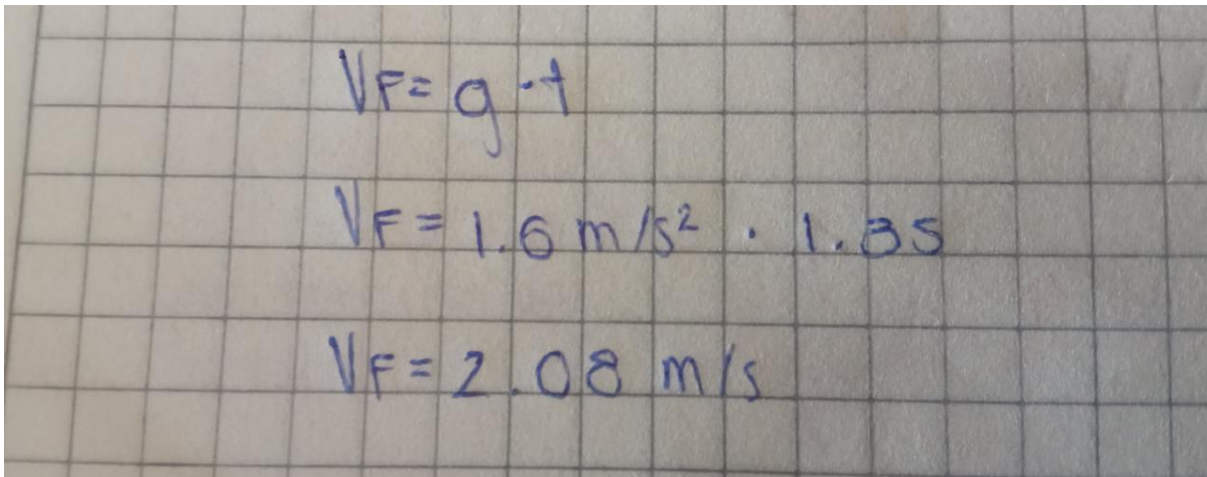 VF = g · t
VF = 1.6 m/s² · 1.3s
VF = 2.08 m/s